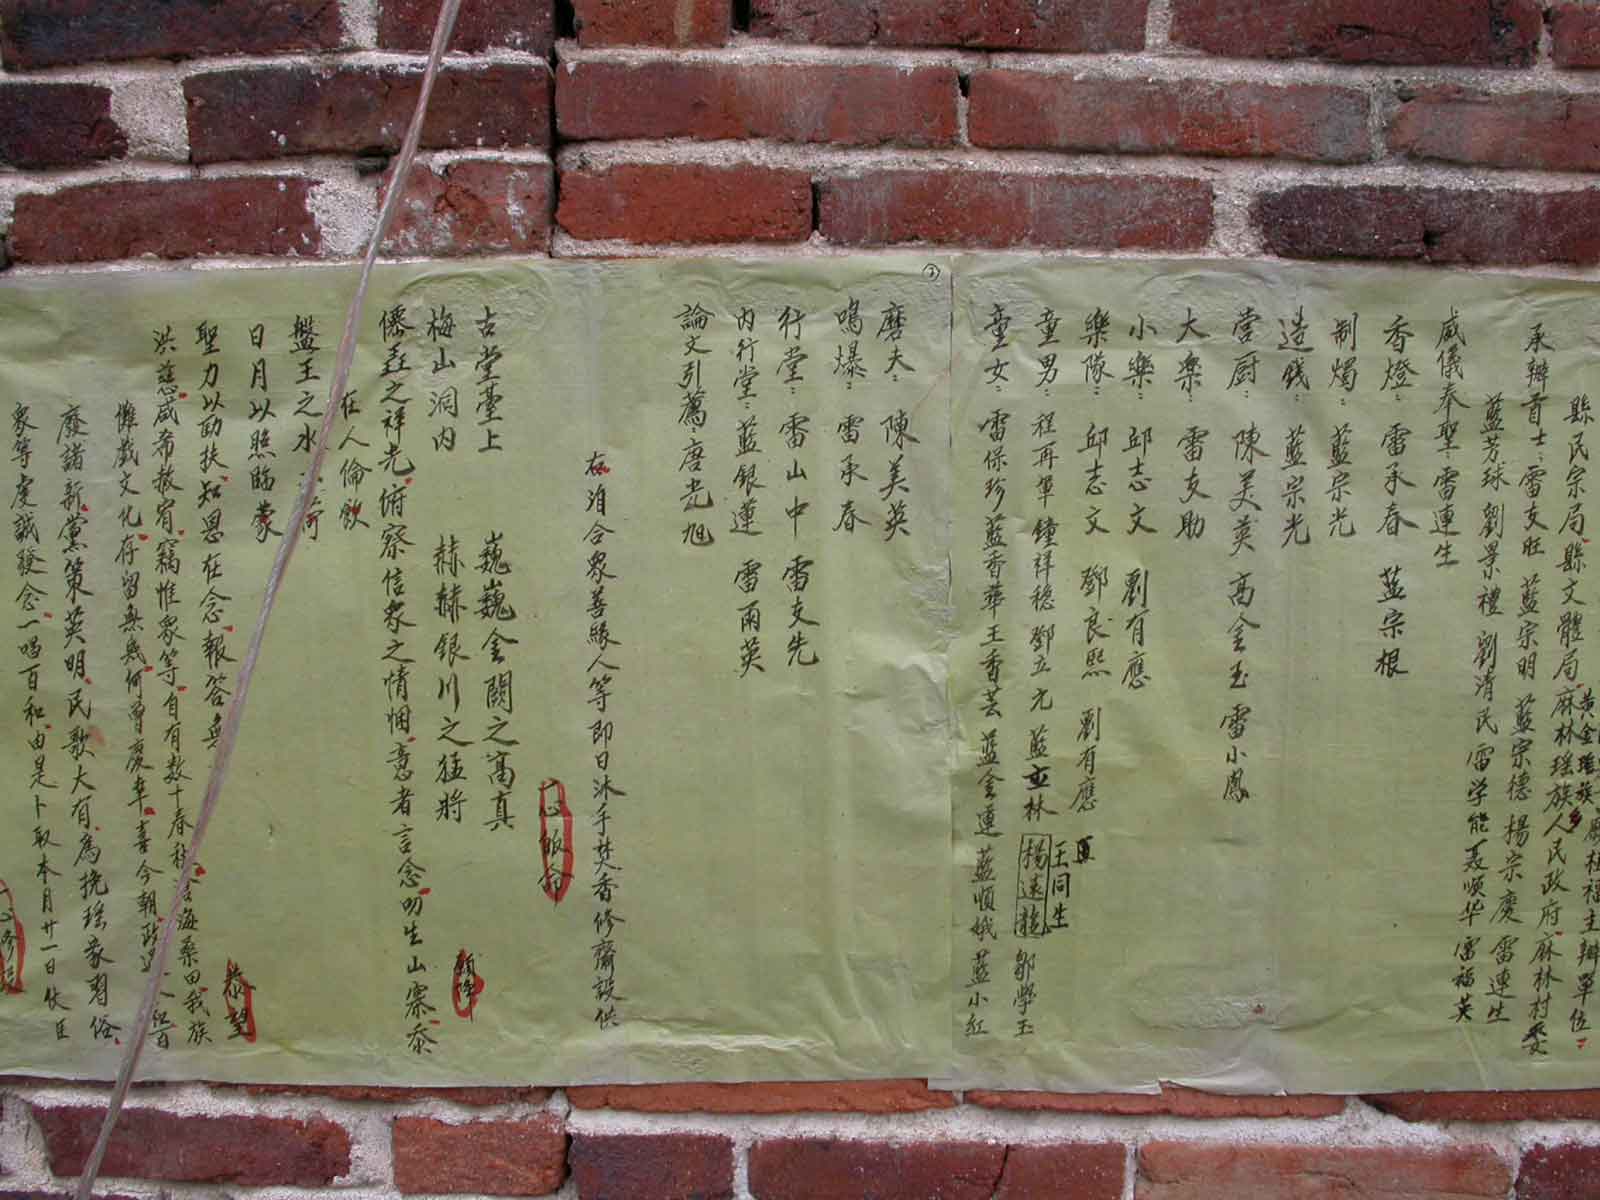 黃金瑤族乡
廟社福主辦單位
縣民宗局縣文體局麻林瑤族人民政府麻林村委
承辦首士：雷支旺 藍宗明 藍宗德 楊宗慶 雷連生
藍芳球 劉景禮 劉清民 雷学能 聂顺华 雷福英
威儀奉聖：雷連生
香燈：雷承春 藍宗根
制燭：藍宗光
造錢：藍宗光
営厨：陳美英 高金玉 雷小鳳
大樂：雷支助
小樂：邱志文 劉有應
樂隊：邱志文 鄧良熙 劉有應
王同生
童男：程再華 鐘祥穏 鄧立元 藍亚林 楊遠龍 鄒學玉
童女：雷保珍 藍香華 王香芸 藍金連 藍順娥 藍小紅
③
磨夫：陳美英
鳴爆：雷承春
行堂：雷山中 雷支先
内行堂：藍銀蓮 雷雨英
論文引薦：唐光旭
右洎合衆善緣人等即日沐手焚香修齋設供
一心皈命
古堂臺上 巍巍金闕之高真
梅山洞内 赫赫銀川之猛將
頫降
僊彛之祥光俯察信衆之情悃意者言念叨生山寨忝
在人倫飲
盤王之水
日月以照臨蒙
聖力以匡扶知恩在念報答無
恭望
洪慈咸希赦宥竊惟衆等自有数十春秋 海桑田我族
儺戲文化存留無幾何曾慶幸喜今朝政
廢諸新黨策英明民歌大有為挽瑶家習俗
衆等虔誠發念一唱百和由是卜取本月廿一日伏臣